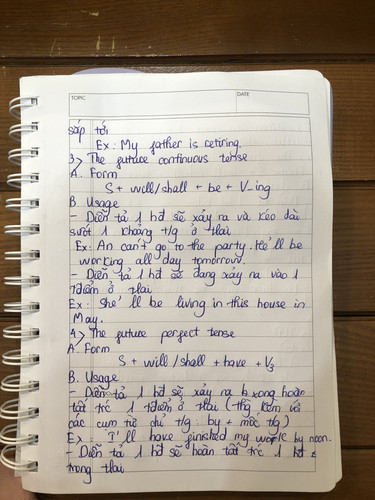 TOPIC
DATE
sắp tới
Ex: My father is retiring.
3> The future continuous tense
A. Form
S + will/shall + be + V-ing
B. Usage
- Diễn tả 1 hđ sẽ xảy ra và kéo dài
suốt 1 khoảng t/g ở tlai
Ex: An can't go to the party. He'll be
working all day tomorrow.
- Diễn tả 1 hđ sẽ đang xảy ra vào 1
tđiểm ở tlai
Ex: She'll be living in this house in
May.
4> The future perfect tense
A. Form
S + will/shall + have + V3
B. Usage
- Diễn tả 1 hđ sẽ xảy ra & xong hoàn
tất trc 1 tđiểm ở tlai (thg kèm vs
các cụm từ chỉ t/g: by + mốc t/g)
Ex: I'll have finished my work by noon.
- Diễn tả 1 hđ sẽ hoàn tất trc 1 hđ
trong tlai